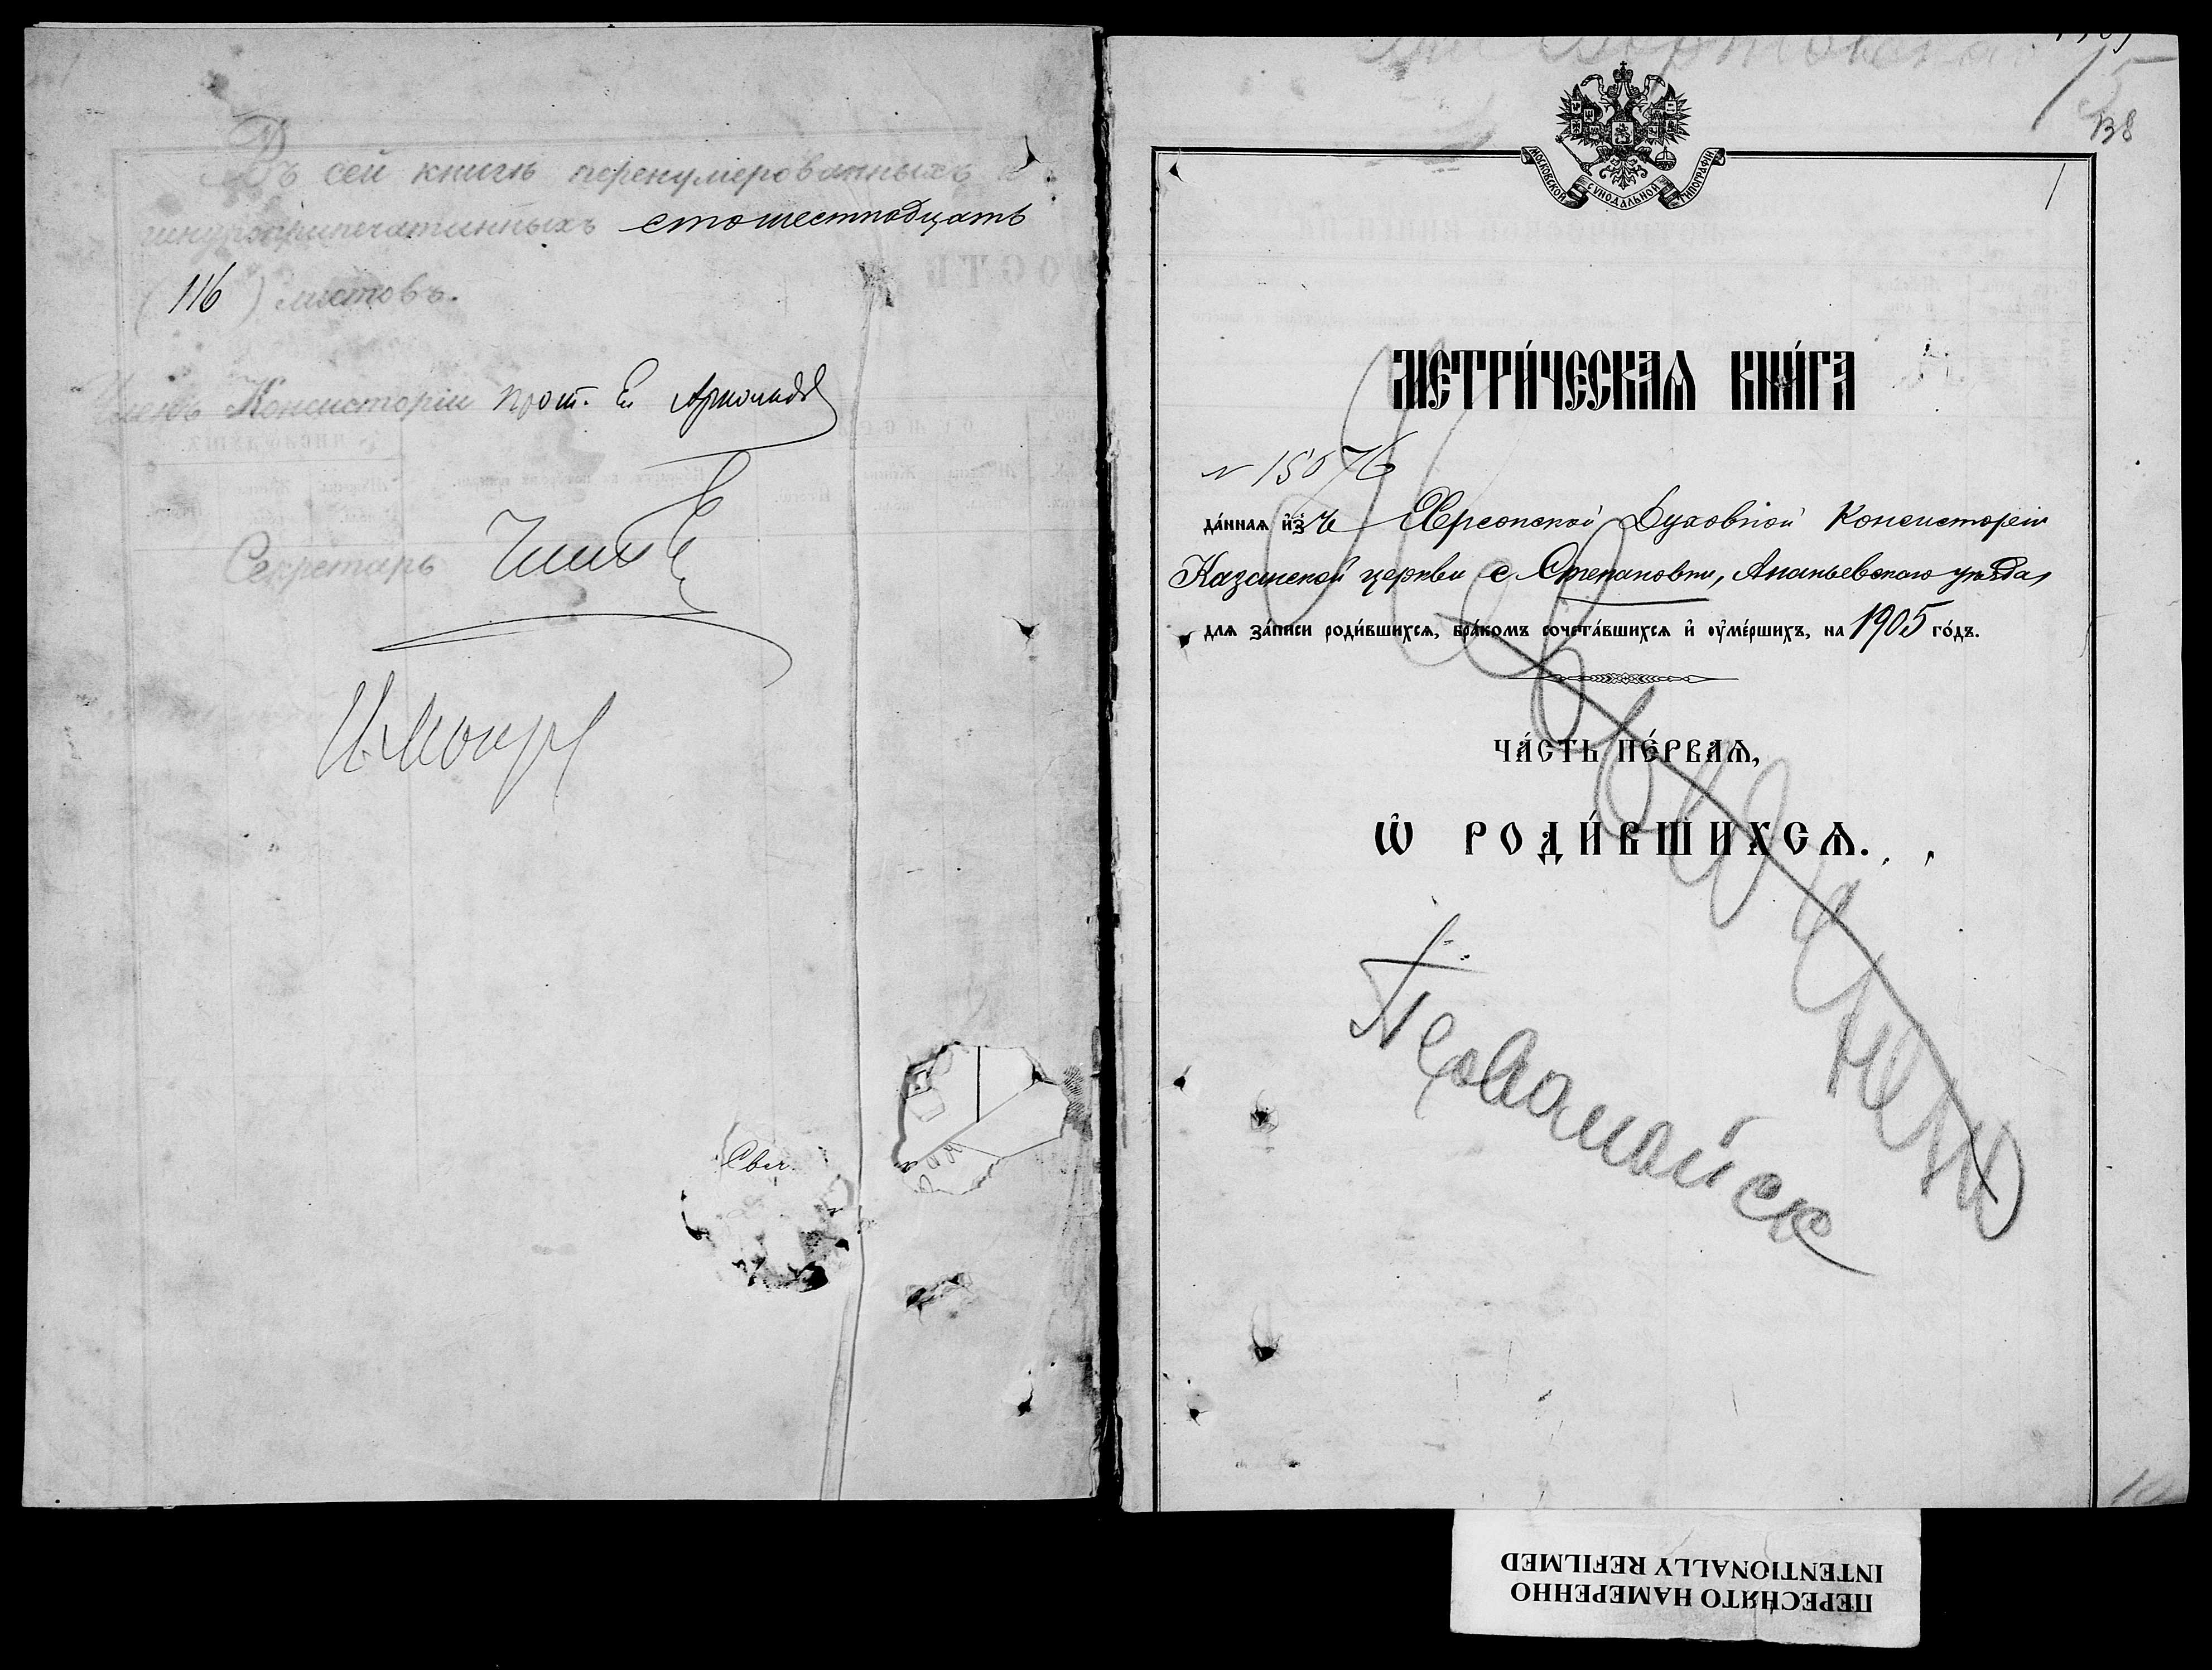 Въ сей книгѣ перенумерованныхъ и
шнуроприпечатанныхъ стошестнадцать
(116) листовъ.
Членъ Консисторіи прот.
Секретарь
Свя
138
1
МОСКОВСКОЙ СѴНОДАЛЬНОЙ ТИПОГРАФІИ
МЕТРИ́ЧЕСКАѦ КНИ́ГА
N 15076
да́ннаѧ и҆зъ Херсонской Духовной Консисторіи
Казанской церкви с. Степановки, Ананьевскаго уѣзда,
для за́писи роди́вшихсѧ, бра́комъ сочета́вшихсѧ и҆ оу҆ме́ршихъ, на 1905 го́дъ.
ЧА́СТЬ ПЕ́РВАѦ,
Ѽ РОДИ́ВШИХСѦ.
Первомайск
ПЕРЕСНЯТО НАМЕРЕННО
INTENTIONALLY REFILMED